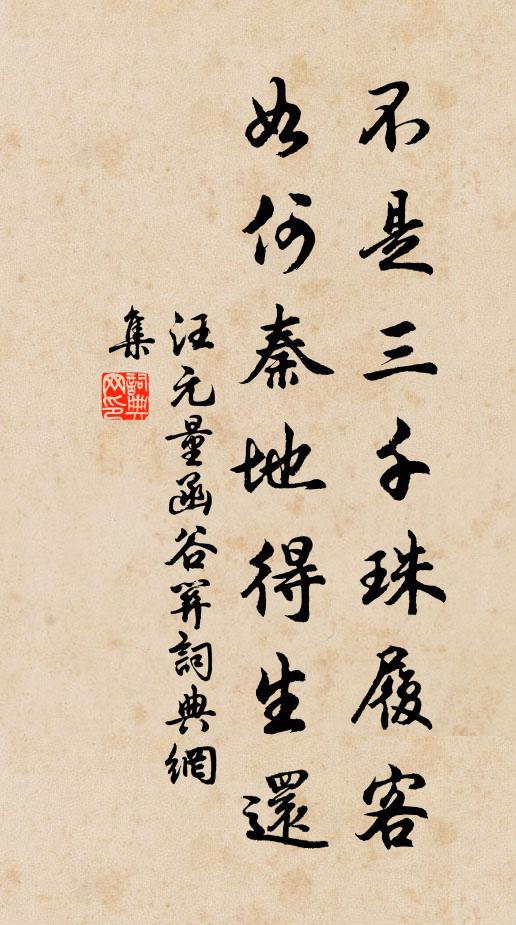 不是三千珠履客
如何秦地得生還
汪元量函谷關詞典網
集
詞典
网印